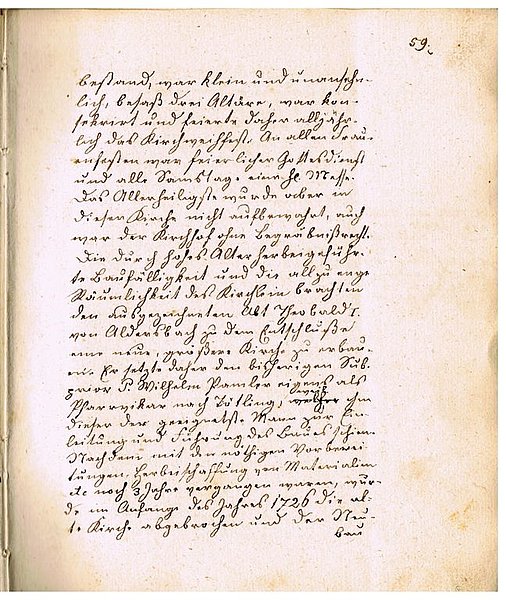 59.
bestand, war klein und unansehn-
lich, besaß drei Altäre, war kon-
sekrirt und feierte daher alljähr-
lich das Kirchweihfest. An allen Frau-
enfesten war feierlicher Gottesdienst
und alle Samstage eine hl. Messe.
Das Allerheiligste wurde aber in
dieser Kirche nicht aufbewahrt, auch
war der Kirchhof ohne Begräbnißrecht.
Die durch hohes Alter herbeigeführ-
te Baufälligkeit und die allzu enge
Räumlichkeit des Kirchlein brachten
den ausgezeichneten Abt Theobald I.
von Aldersbach zu dem Entschluße
eine neue, größere Kirche zu erbau-
en. Er setzte daher den bisherigen Sub-
prior P. Wilhelm Pamler eigens als
Pfarrvikar nach Tötling, welcher ihm
dieser der geeignetste Mann zur Ein-
leitung und Führung des Baues schien.
Nachdem mit den nöthigen Vorberei-
tungen, Herbeischaffung von Materialien
etc. noch 3 Jahre vergangen waren, wur-
de im Anfange des Jahres 1726 die al-
te Kirche abgebrochen und der Neu-
bau